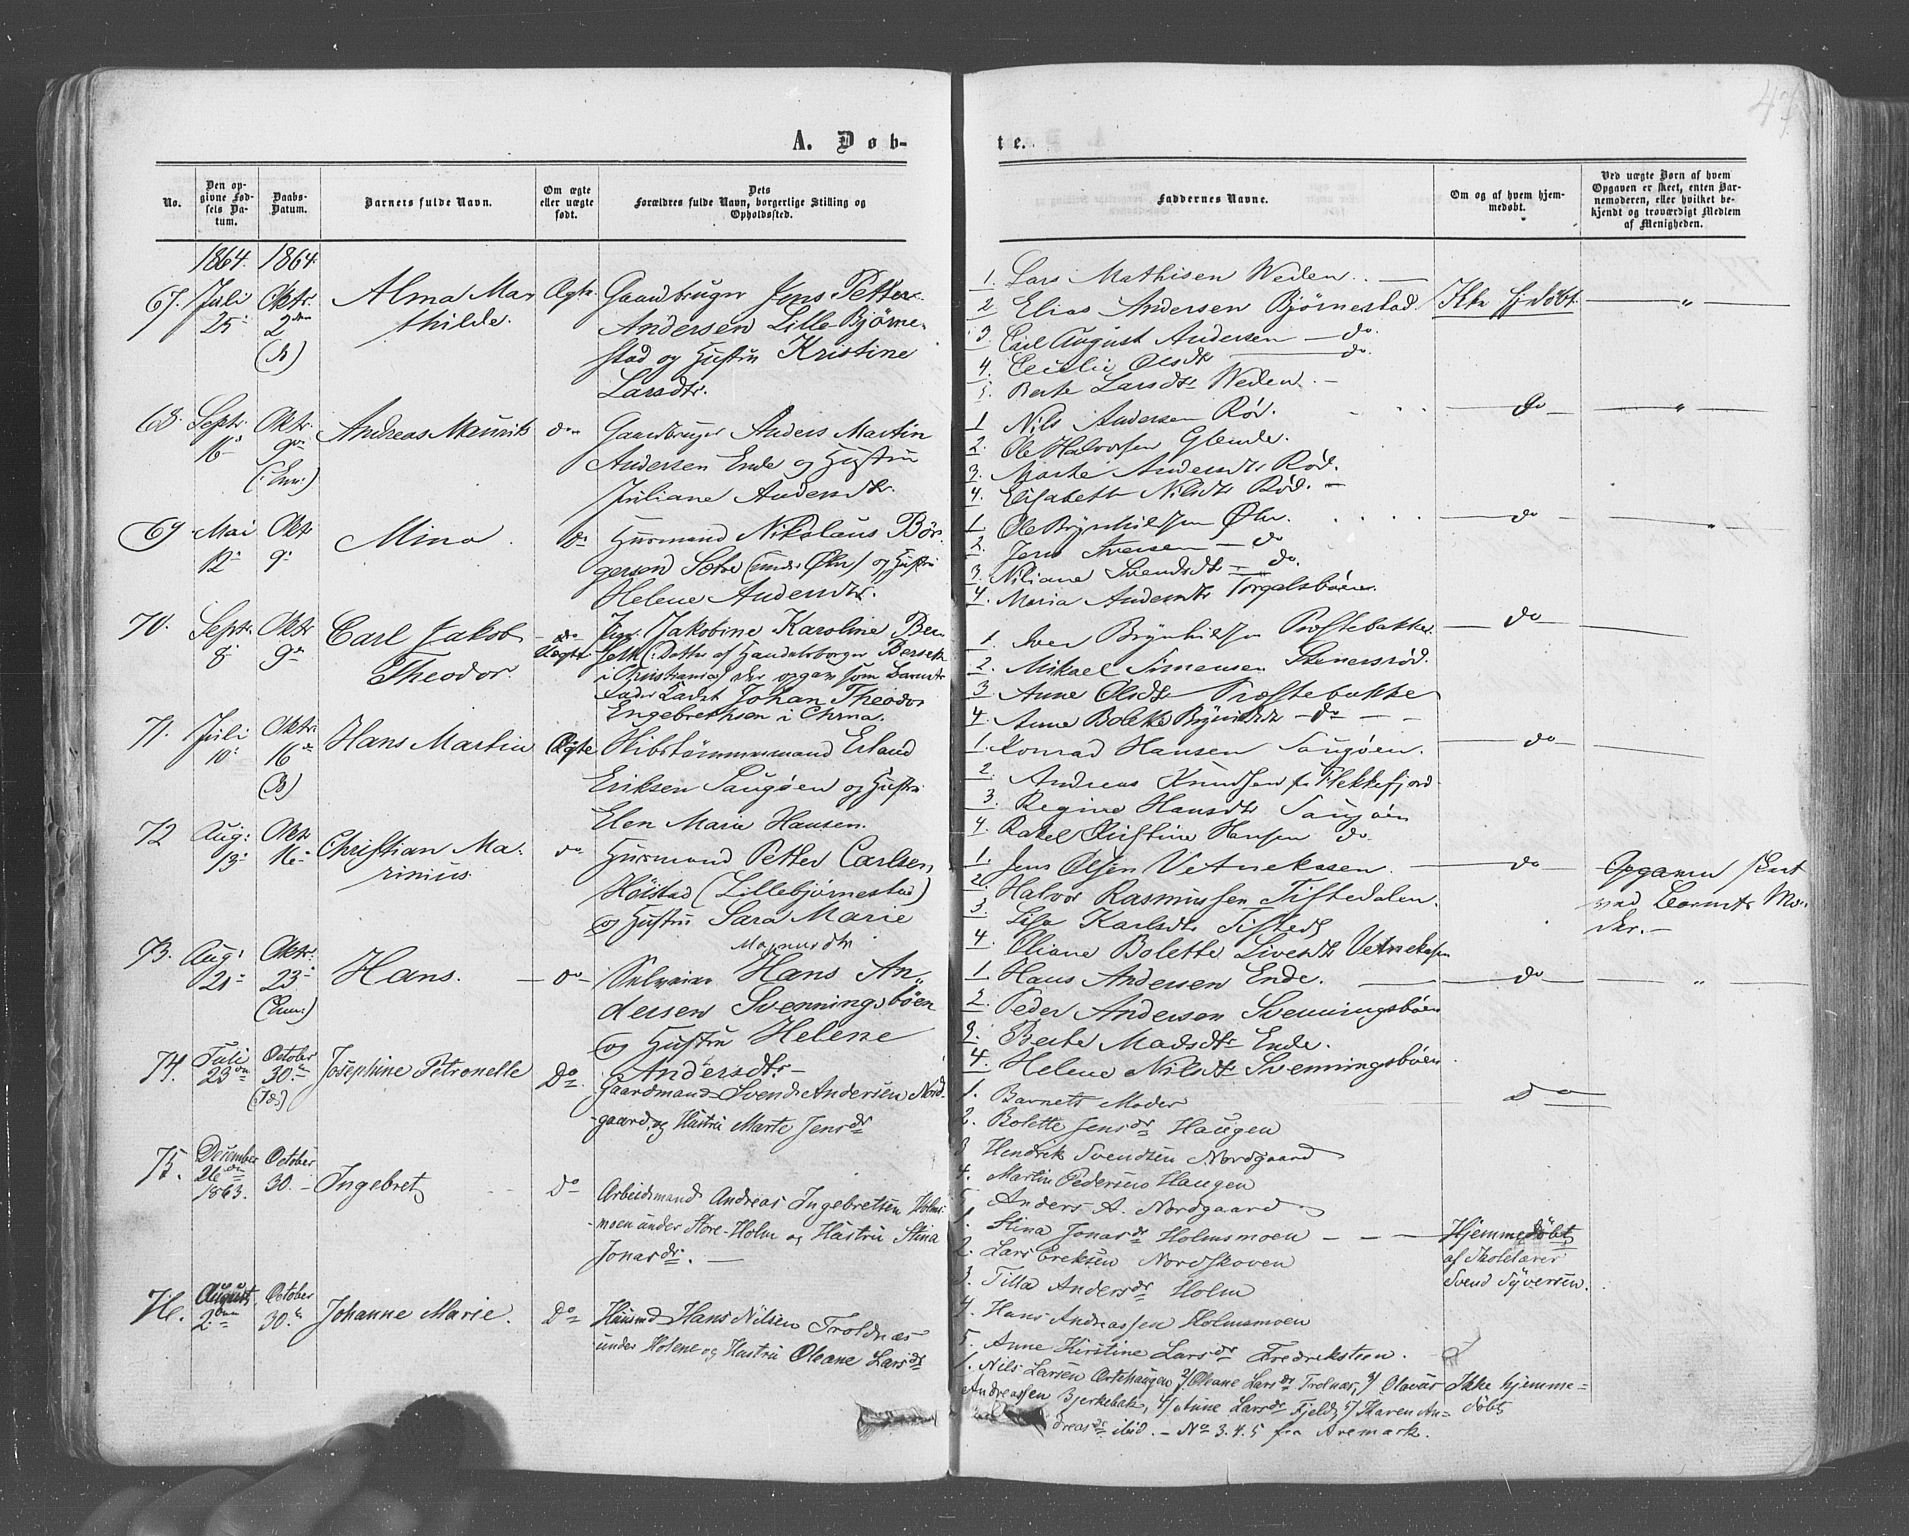 47
A. Døb-
te.
No.
Den opgivne Fødsels Datum.
Daabs-Datum.
Barnets fulde Navn.
Om ægte eller uægte født.
Dets Forældres fulde Navn, borgerlige Stilling og Opholdssted.
Faddernes Navne.
Om og af hvem hjemmedøbt.
Ved uægte Børn af hvem Opgaven er skeet, enten Barnemoderen, eller hvilket bekjendt og troværdigt Medlem af Menigheden.
1864. 1864.
67. Juli 25 Oktr. 2den
Alma Mathilde.
Ægte
Gaardbruger Jens Petter
Andersen Lille Bjørne-
stad og Hustru Kristine
Larsdtr.
1. Lars Mathisen Weden
2 Elias Andersen Bjørnestad
3. Carl August Andersen do
4. Cecilie Olsdtr do.
5. Berte Larsdtr Weden.
Ikke hjdøbt.
68. Septr. 16 Oktr. 9de (Enn:)
Andreas Mauritz
do
Gaardbruger Anders Martin
Andersen Ende og Hustru
Juliane Andersdtr.
1 Nils Andersen Rød.
2. Ole Halvorsen Glende.
3. Marte Andersdtr Rød.
4. Elisabeth Nilsdtr Rød.
do
69 Mai 12 Oktr 9.
Mina
do
Husmand Nikolaus Bør-
gersen Sætre (under Øhr) og Hustru
Helene Andersdtr.
1. Ole Brynhildsen Øhr.
2. Jens Iversen do
3. Niliane Svendsdtr do.
4. Maria Andersdtr Torgalsbøen
do
70. Septr. 8 Oktr 9de
Carl Jakob
Theodor.
Uægte
Pige Jakobine Karoline Ber-
seth (Datter af Handelsborger Berseth
i Christiania) der opgav som Barnets
Fader Kadet Johan Theodor
Engebrethsen i Chrna.
1. Iver Brynhildsen Præstebakke.
2. Mikael Simensen Stenersrød.
3 Anne Olsdtr Præstebakke
4. Anne Bolette Brynildsdtr do
do
71. Juli 10 Oktr. 16de (B)
Hans Martin
Ægte
Skibstømmermand Erland
Eriksen Saugøen og Hustru
Elen Marie Hansen.
1. Konrad Hansen Saugøen.
2. Andreas Knudsen fr Flekkefjord
3. Regine Hansdtr Saugøen
4. Rakel Kristine Hansen do.
do
72 Aug: 13 Oktr 16
Christian Ma-
rinius
do
Husmand Petter Carlsen,
Höistad (Lillebjørnestad)
og Hustru Sara Marie
Magnusdtr
1. Jens Olsen Vetnekasen
2. Halvor Rasmussen Tistedalen.
3 Lise Karlsdtr Tisteds
4. Oliane Bolette Livesdtr Vetnekasen
do
Opgaven skeet
ved Barnets Mo-
der.
73. Aug: 21 Oktr. 23 (Enn:)
Hans.
do
Selveier Hans An-
dersen Svenningsbøen
og Hustru Helene
Andersdtr.
1 Hans Andersen Ende.
2. Peder Andersen Svenningsbøen
3. Berte Madsdtr Ende.
4. Helene Nilsdtr Svenningsbøen
do
74. Juli 23 October 30. (Ids)
Josephine Petronelle
Do
Gaardmand Svend Andersen Nord-
gaard, og Hustru Marte Jensdr
1. Barnets Moder
2. Bolette Jensdr Haugen
3 Hendrik Svendsen Nordgaard
4. Martin Pedersen Haugen
5 Anders A. Nordgaard
do
75. December 26 1863. October 30.
Ingebret
Do
Arbeidsmand Andreas Ingebretsen Holms-
moen under Store-Holm og Hustru Stina
Jonasdr.
1. Stina Jonasdr Holmsmoen
2. Lars Ereksen Nordskoven
3. Tilla Andersdr Holm
4. Hans Andreassen Holmsmoen
5. Anne Kirstine Larsdr Fredriksteen.
Hjemmedøbt
af Skolelærer
Svend Syversen.
76. August 2den October 30.
Johanne Marie.
Do
Huusmd Hans Nilsen Troldnæs
under Holene og Hustru Oleane Larsdr
1. Nils Larsen Ortehaugen 2/ Oleane Larsdr Trolnæs, 3/ Olavus
Andreassen Bjerkebæk, 4/ Anne Larsdr Fjeld, 5/ Maren An-
dreasdr ibid. - No 3. 4. 5 fra Aremark.
Ikke hjemme-
døbt